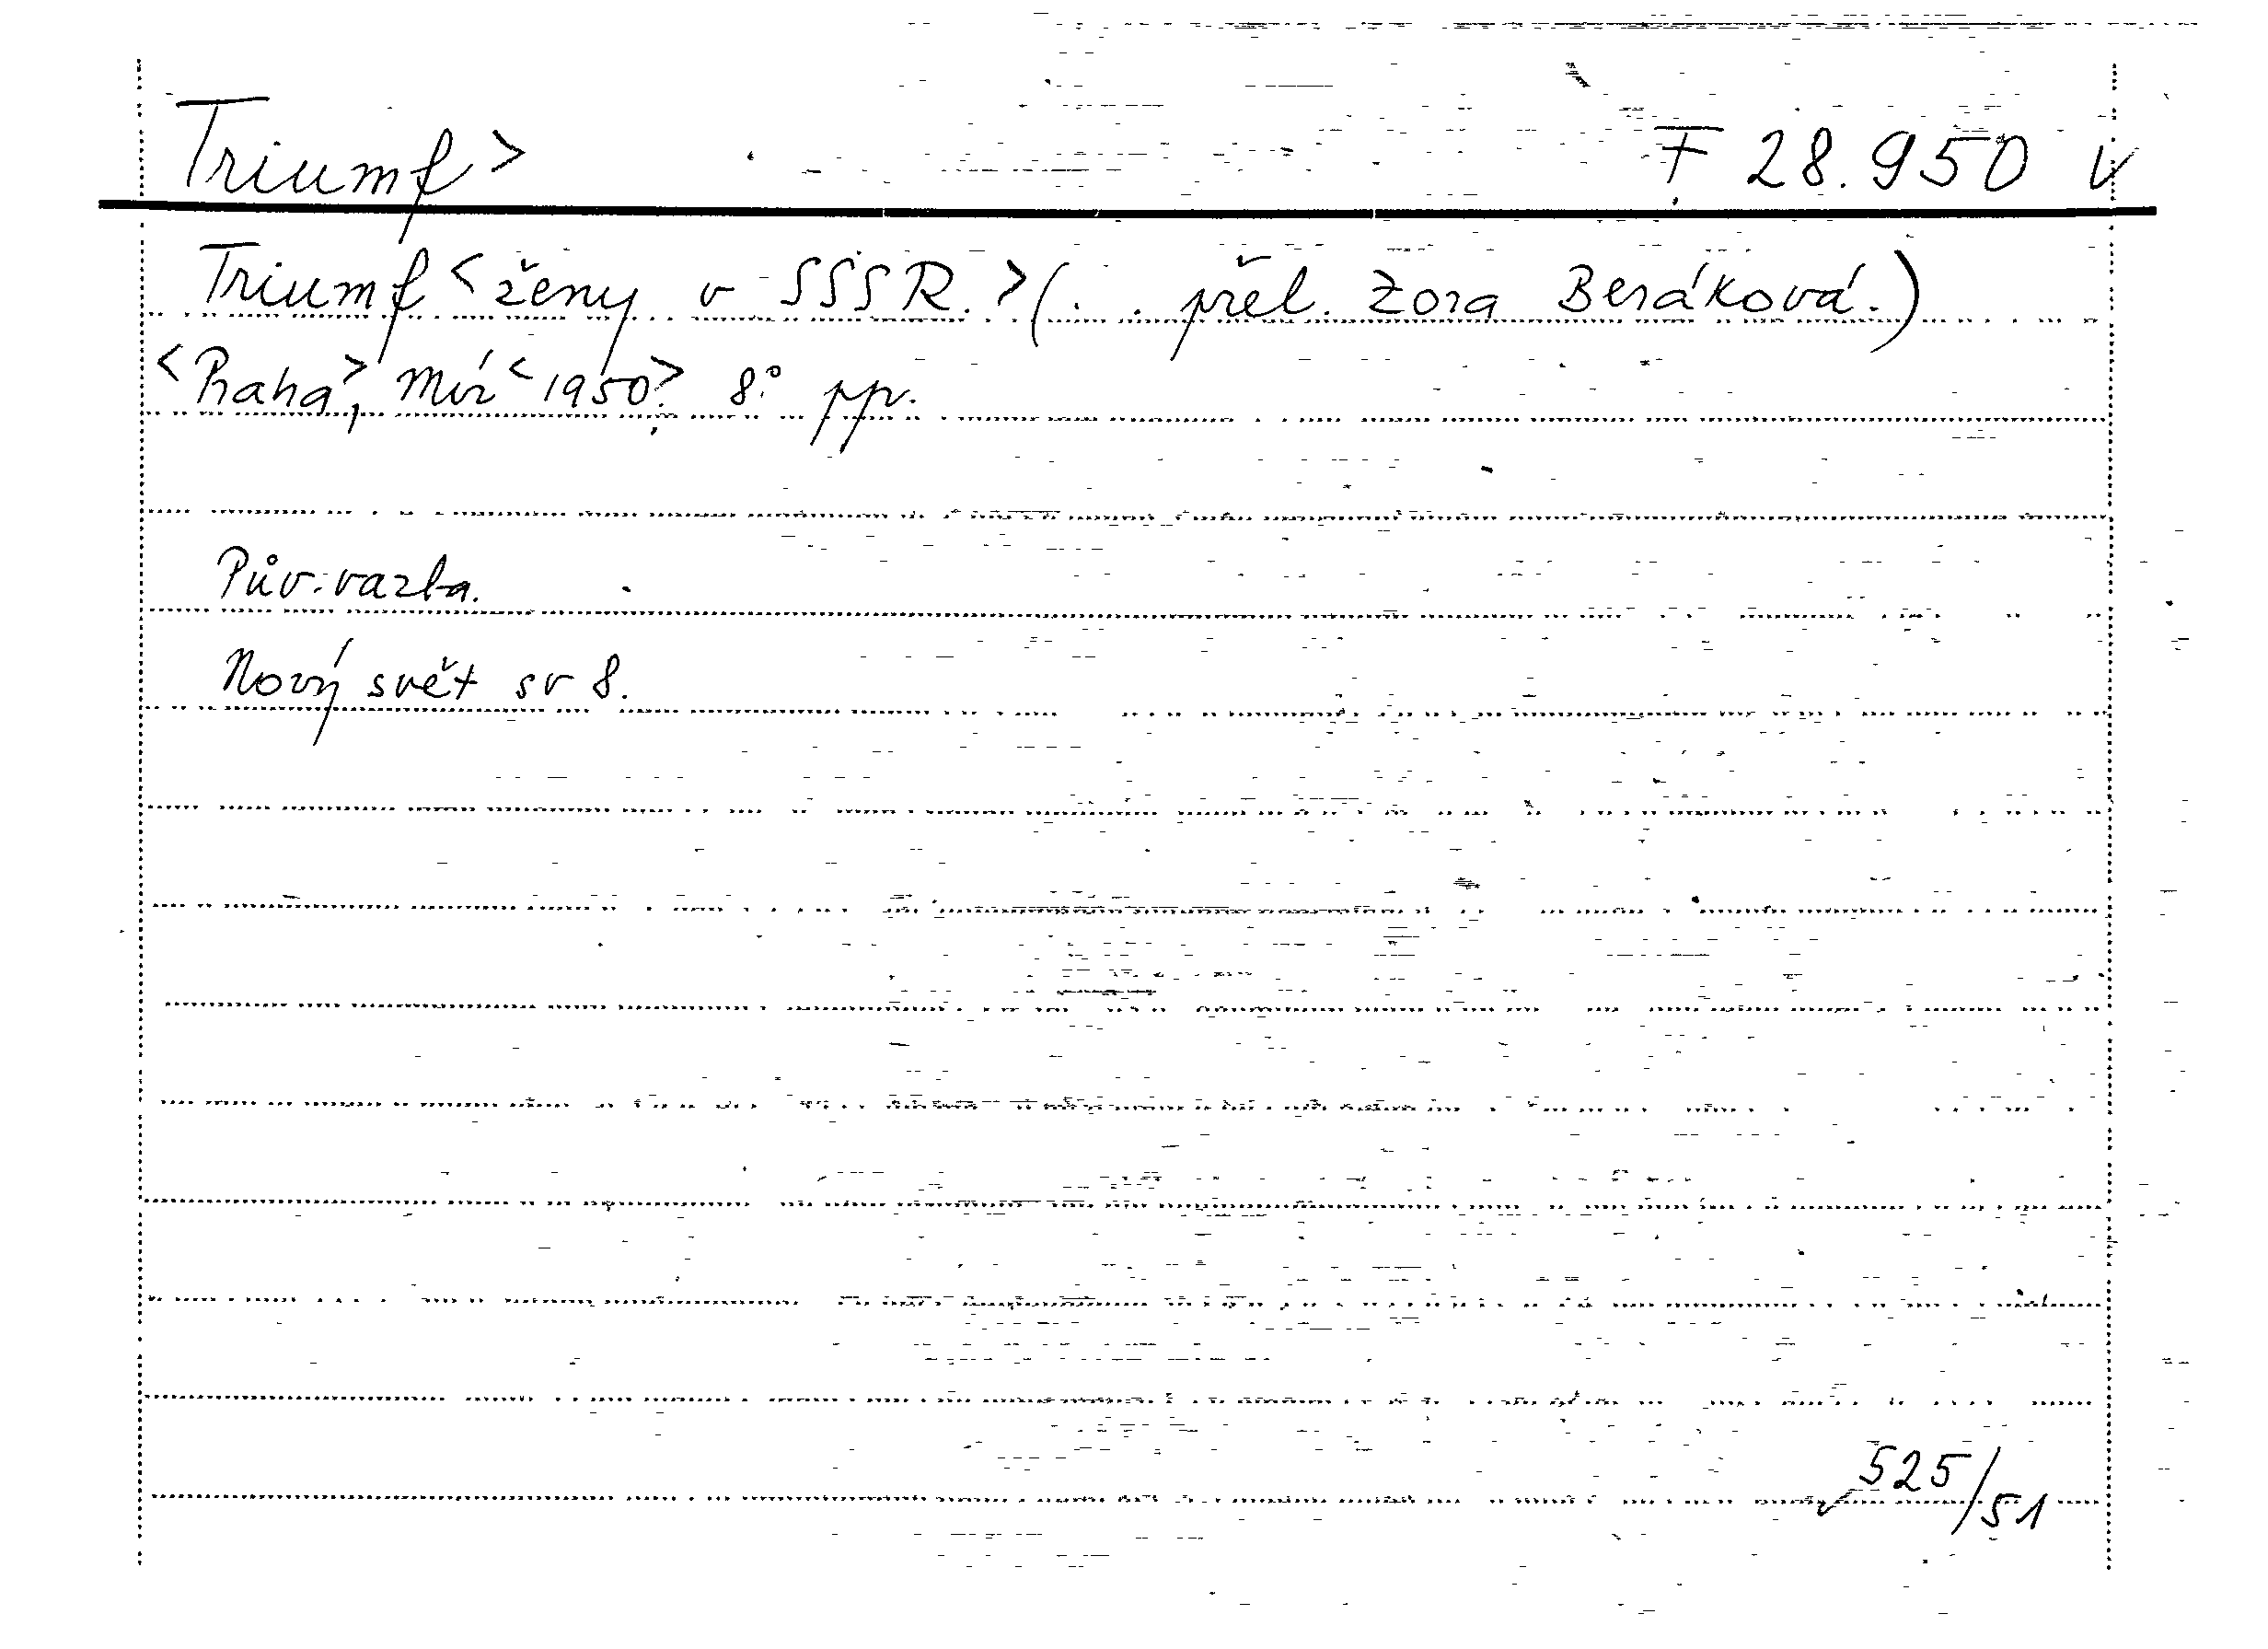 Triumf > F 28.950 v
Triumf < ženy v SSSR. > (. . přel. Zora Beráková.)
<Praha>, Mír <1950>. 8° pp.
Pův. vazba.
Nový svět sv 8.
525/51